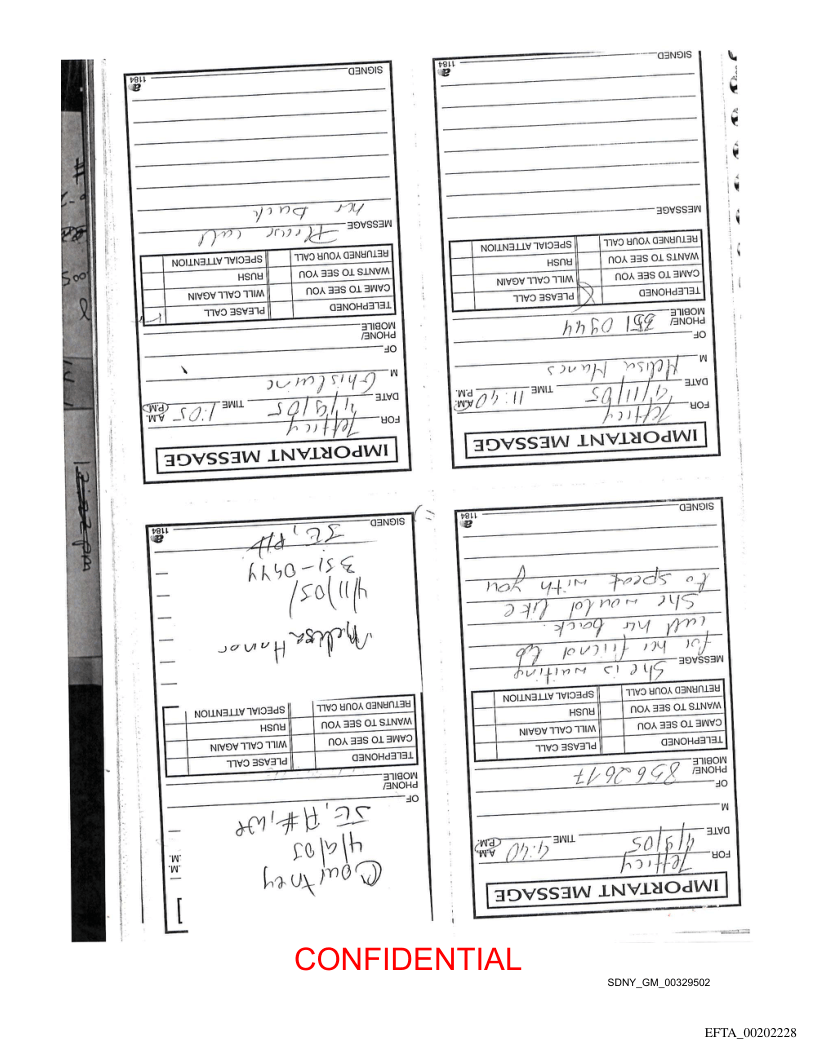 IMPORTANT MESSAGE
FOR Jeffrey
DATE 4/9/05 TIME 4:40 A.M. P.M.
M
OF
PHONE/
MOBILE 856 2617
TELEPHONED PLEASE CALL
CAME TO SEE YOU WILL CALL AGAIN
WANTS TO SEE YOU RUSH
RETURNED YOUR CALL SPECIAL ATTENTION
MESSAGE She is waiting
for her friend to
call her back.
She would like
to speak with you
SIGNED
1184
Courtney
4/9/05
SE, P#, WP
M.
M.
OF
PHONE/
MOBILE
TELEPHONED PLEASE CALL
CAME TO SEE YOU WILL CALL AGAIN
WANTS TO SEE YOU RUSH
RETURNED YOUR CALL SPECIAL ATTENTION
Melissa Hanor
4/11/05/
351-0944
SE, P#
SIGNED
1184
IMPORTANT MESSAGE
FOR Jeffrey
DATE 4/11/05 TIME 11:40 A.M. P.M.
M Melisa Hanes
OF
PHONE/
MOBILE 351 0944
TELEPHONED PLEASE CALL
CAME TO SEE YOU WILL CALL AGAIN
WANTS TO SEE YOU RUSH
RETURNED YOUR CALL SPECIAL ATTENTION
MESSAGE
SIGNED
1184
IMPORTANT MESSAGE
FOR Jeffrey
DATE 4/9/05 TIME 1:05 A.M. P.M.
M Ghislaine
OF
PHONE/
MOBILE
TELEPHONED PLEASE CALL
CAME TO SEE YOU WILL CALL AGAIN
WANTS TO SEE YOU RUSH
RETURNED YOUR CALL SPECIAL ATTENTION
MESSAGE Please call
her back
SIGNED
1184
CONFIDENTIAL
SDNY_GM_00329502
EFTA_00202228